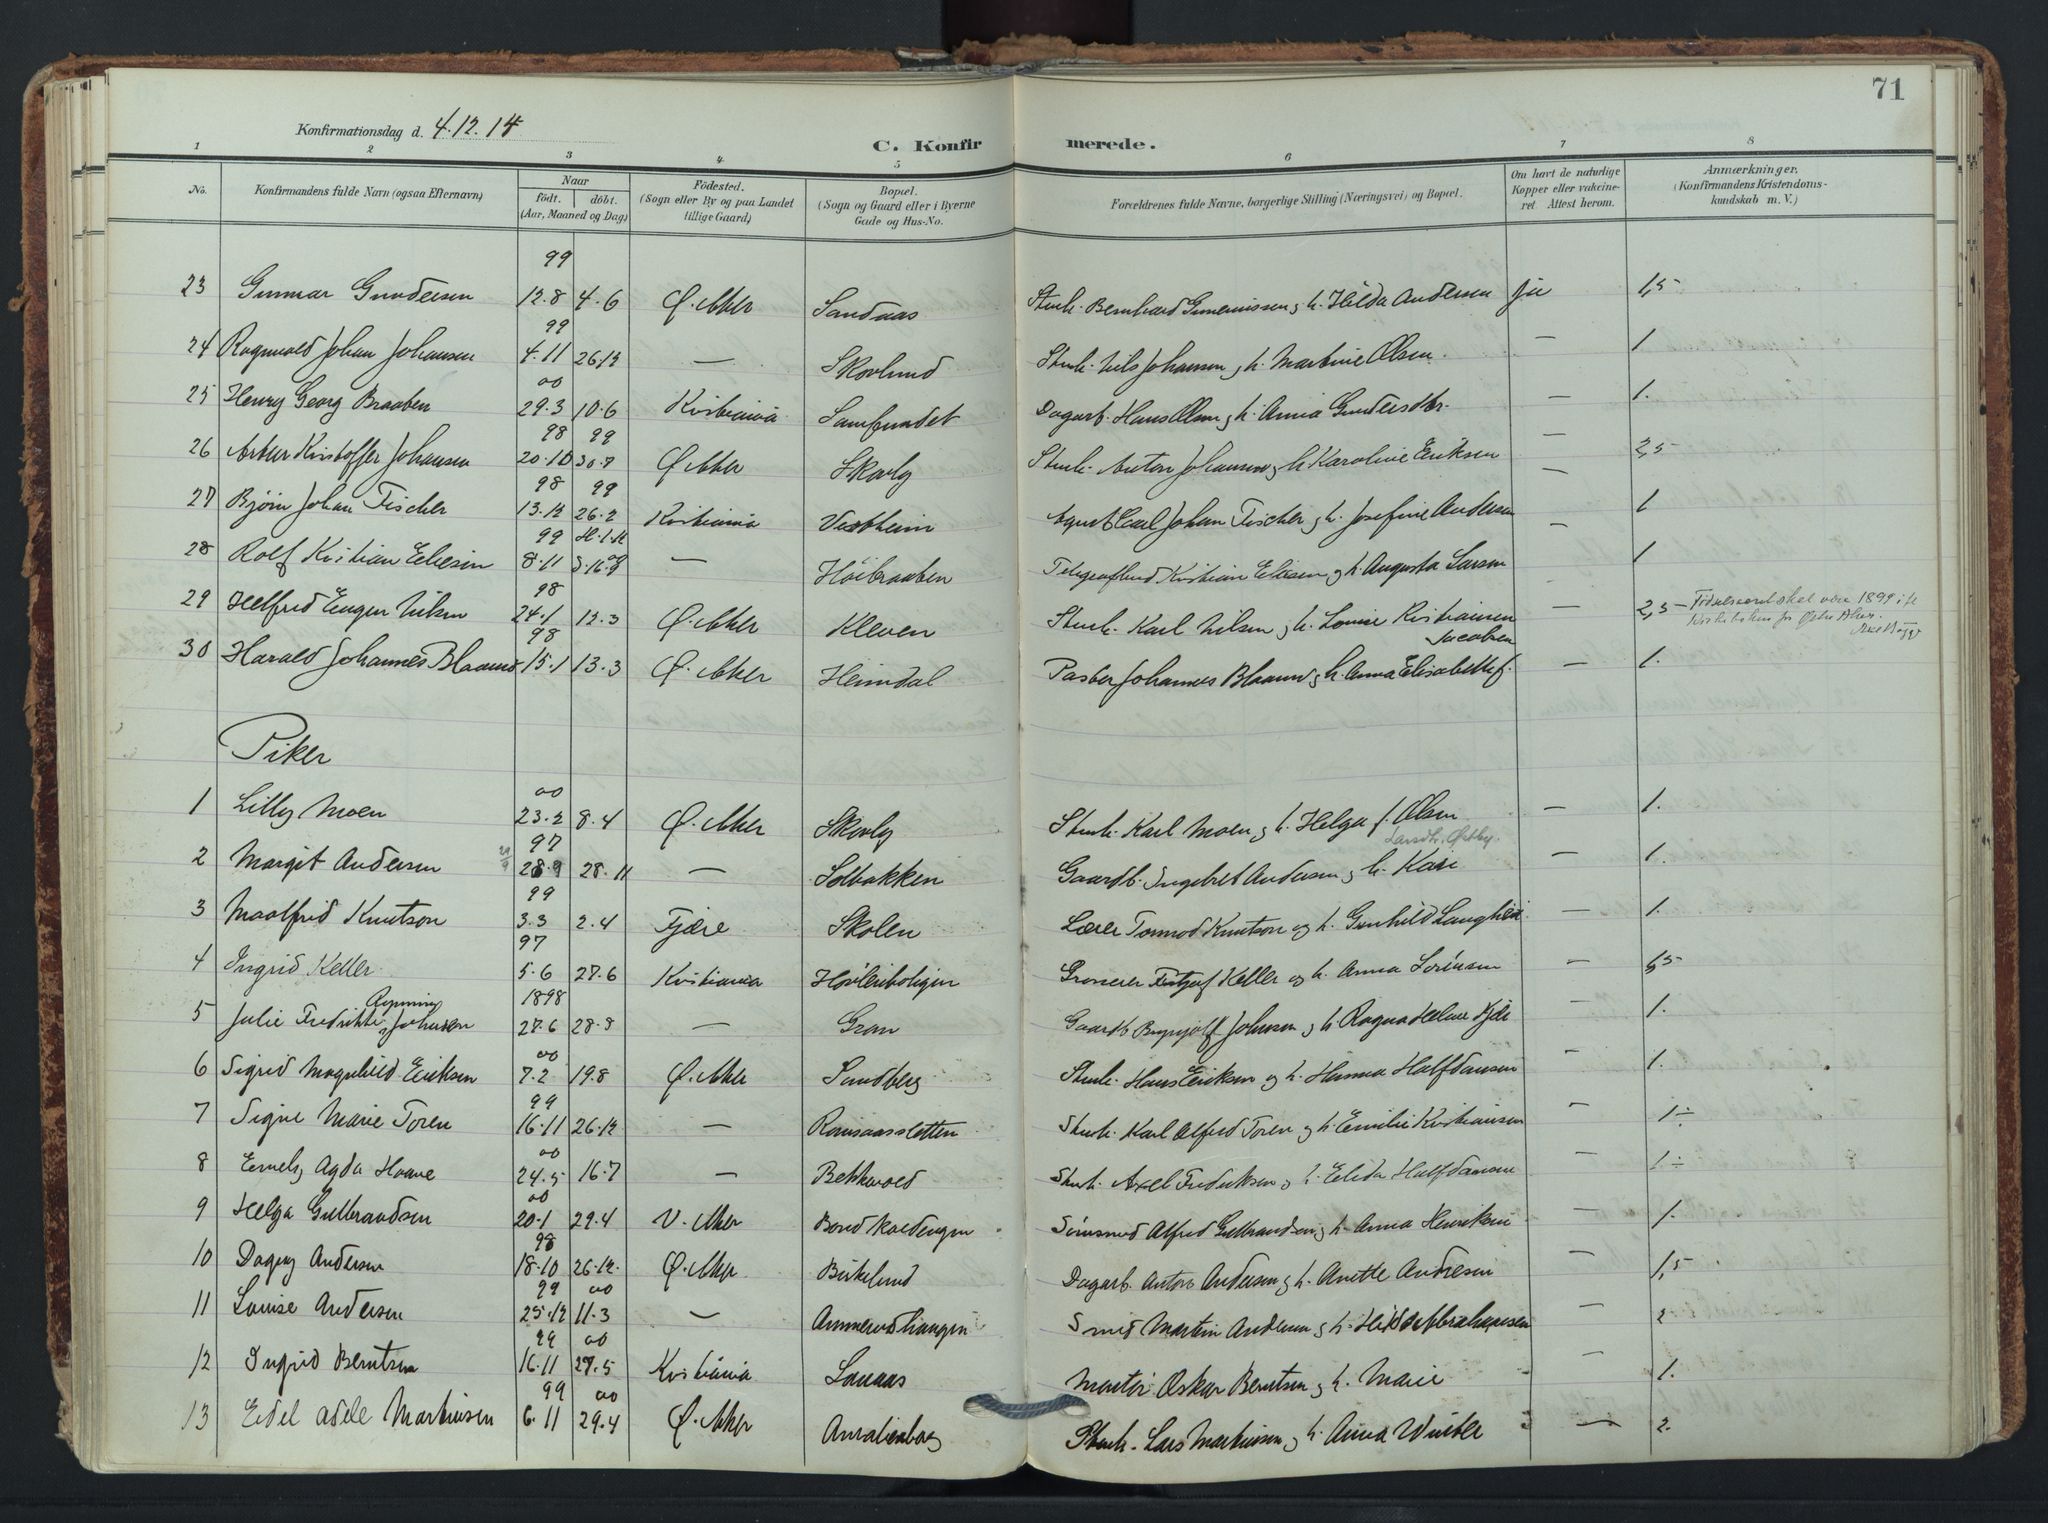 71
Konfirmationsdag d. 4.12.14
C. Konfirmerede.
1 2 3 4 5 6 7 8
No. Konfirmandens fulde Navn (ogsaa Efternavn) Naar födt. döbt. (Aar, Maaned og Dag) Födested. (Sogn eller By og paa Landet tillige Gaard) Bopæl. (Sogn og Gaard eller i Byerne Gade og Hus-No. Forældrenes fulde Navne, borgerlige Stilling (Næringsvei) og Bopæl. Om havt de naturlige Kopper eller vakcineret. Attest herom. Anmærkninger. (Konfirmandens Kristendomskundskab m. V.)
99
23 Gunnar Gundersen 12.8 4.6 Ø. Aker Sandaas Stenh. Bernhard h. Hilda Andersen ja 1,5
99
24 Ragnvald Johan Johansen 4.11 26.12 — Skovlund Stenh. Nils Johansen og h. Martine Olsen. — 1
00
25 Henry Georg Braaten 29.3 10.6 Kristiania Samfundet Dagarb. Hans Olsen og h. Anna Gundersdtr. — 1.
98 99
26 Artur Kristoffer Johansen 20.10 30.7 Ø. Aker Skovly Stenh. Anton Johansen og h. Karoline Eriksen — 2,5
98 99
27 Bjørn Johan Fischer 13.12 26.2 Kristiania Vestheim Agent Carl Johan Fischer og h. Josefine Andersen — 1
99
28 Rolf Kristian Eliesen 8.11 — Høibraaten Kristian Eliesen og h. Augusta Larsen — 1
98
29 Helfred Eugen Nilsen 24.1 12.3 Ø. Aker Kleven Stenh. Karl Nilsen og h. Lovise Kristiansen — 2,5 — Fødselsaaret skal være 1899 if.
98 Jacobsen
30 Harald Johannes Blaauw 15.1 13.3 Ø. Aker Heimdal Pastor Johannes Blaauw og h. Anna Elisabeth f. — 1.
Piker
00
1 Lilly Moen 23.2 8.4 Ø. Aker Skovly Stenh. Karl Moen og h. Helga f. Olsen — 1.
97 Larsdtr. Østby.
2 Margit Andersen 28.9 28.11 — Solbakken Gaardb. Ingebret Andersen og h. Kari — 1.
99
3 Maalfrid Knutson 3.3 2.4 Fjære Skolen Lærer Tormod Knutson og h. Gunhild Langhei — 1.
97
4 Ingrid Keller 5.6 27.6 Kristiania Høvleriboligen Grosserer Fritjof Keller og h. Anna Sørensen — 1,5
1898
5 Julie Fredrikke Johnsen 27.6 28.8 — Gran Gaardb. Johnsen og h. Ragna Helene — 1.
00
6 Sigrid Magnhild Eriksen 7.2 19.8 Ø. Aker Sandberg Stenh. Hans Eriksen og h. Hanna Halfdansen — 1.
99
7 Signe Marie Toren 16.11 26.12 — Romsaassletten Stenh. Karl Alfred Toren og h. Emilie Kristiansen — 1 ÷
00
8 Emely Agda Hanne 24.5 16.7 — Bekkevold Stenh. Axel Fredriksen og h. Elida Halfdansen — 1 ÷
00
9 Helga Gulbrandsen 20.1 29.4 V. Aker Alfred Gulbrandsen og h. Anna Henriksen — 1.
98
10 Dagny Andersen 18.10 26.12. Ø. Aker Birkelund Dagarb. Anton Andersen og h. Anette Andresen — 1,5
99 00
11 Louise Andersen 25.12 11.3 — Ammerudhaugen Smed Martin Andersen og h. Hilda Abrahamsen — 2
99 00
12 Ingrid Berntsen 16.11 27.5 Kristiania Montør Oskar Berntsen og h. Marie — 1.
99 00
13 Eidel Adele Martinsen 6.11 29.4 Ø. Aker Amalienborg Stenh. Lars Martinsen og h. Anna Winter — 2.